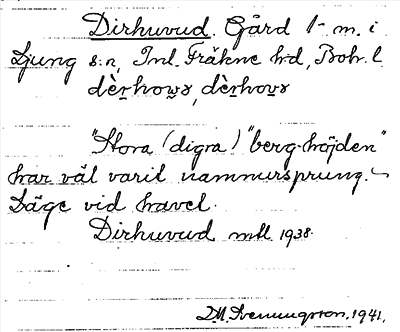 Dirhuvud. Gård 1- m. i
Ljung s:n, Inl. Fräkne h:d, Boh. l.
dèrhowɤ, dèrhovɤ
"Stora (digra) "berg-höjden"
har väl varit namnursprung. –
Läge vid havet.
Dirhuvud mtl 1938.
D.M. Hemmingsson. 1941.